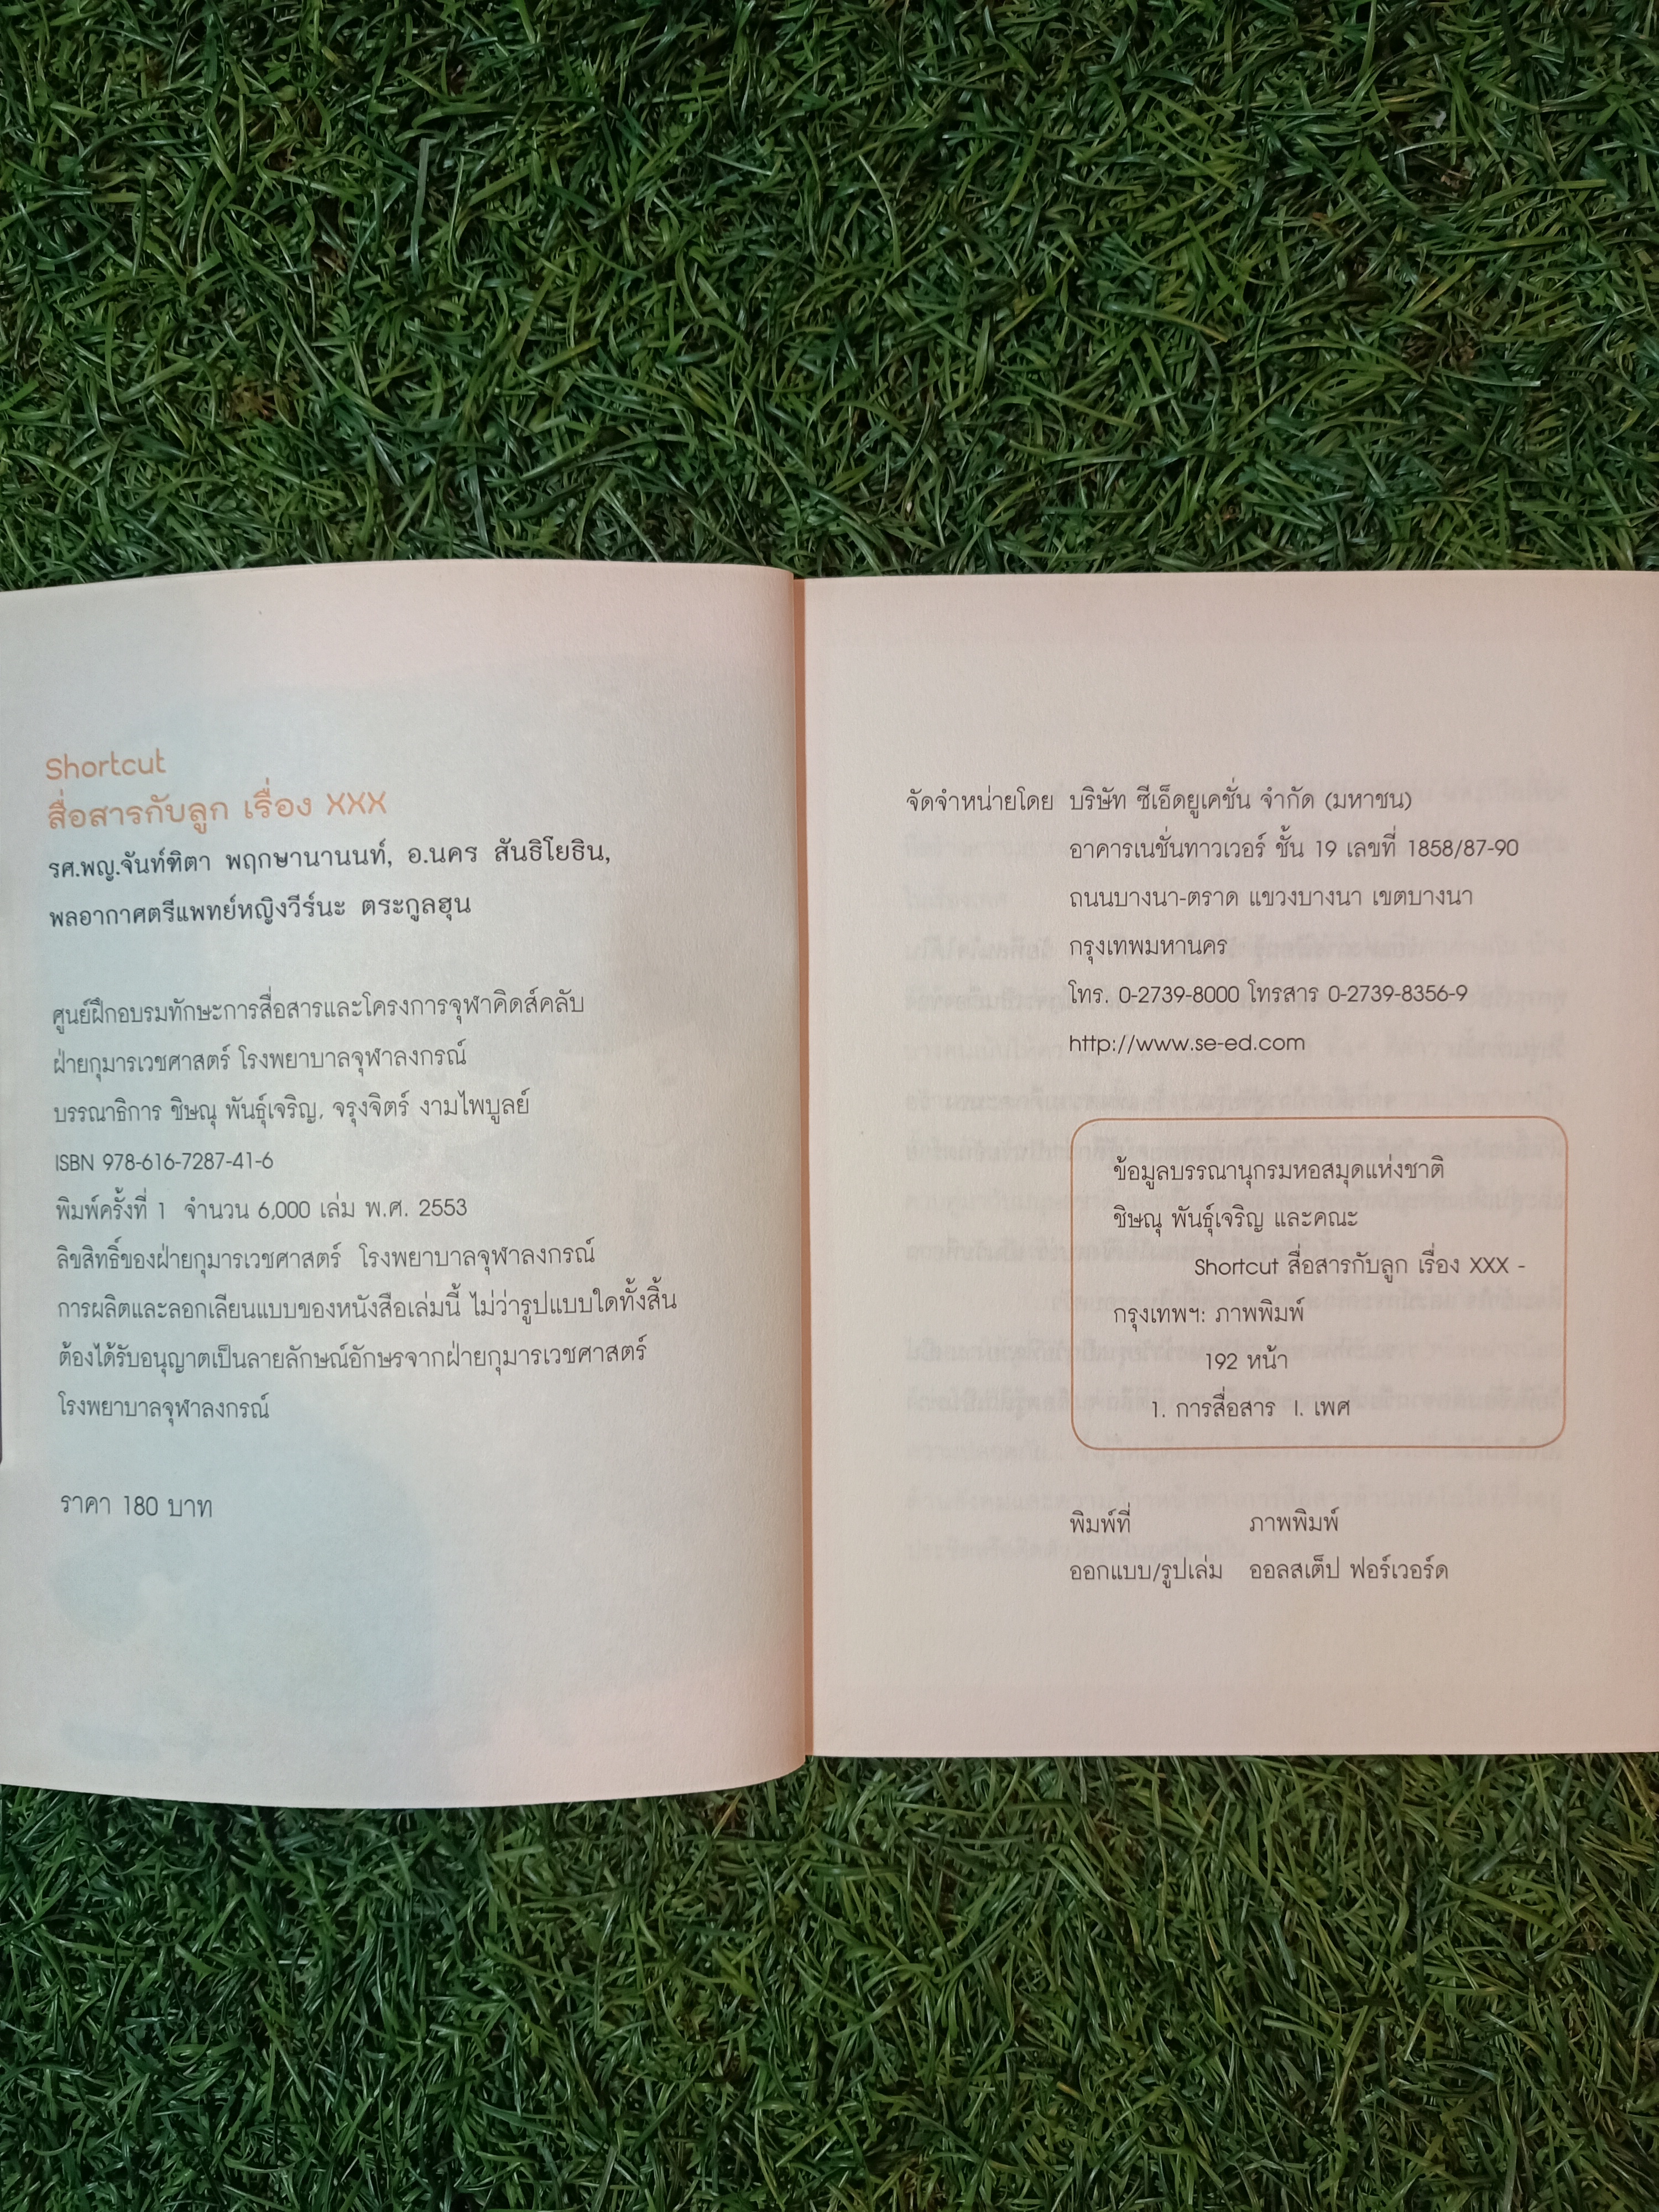 Shortcut
สื่อสารกับลูก เรื่อง XXX
รศ.พญ.จันท์ฑิตา พฤกษานานนท์, อ.นคร สันธิโยธิน,
พลอากาศตรีแพทย์หญิงวีร์นะ ตระกูลฮุน
ศูนย์ฝึกอบรมทักษะการสื่อสารและโครงการจุฬาคิดส์คลับ
ฝ่ายกุมารเวชศาสตร์ โรงพยาบาลจุฬาลงกรณ์
บรรณาธิการ ชิษณุ พันธุ์เจริญ, จรุงจิตร์ งามไพบูลย์
ISBN 978-616-7287-41-6
พิมพ์ครั้งที่ 1 จำนวน 6,000 เล่ม พ.ศ. 2553
ลิขสิทธิ์ของฝ่ายกุมารเวชศาสตร์ โรงพยาบาลจุฬาลงกรณ์
การผลิตและลอกเลียนแบบของหนังสือเล่มนี้ ไม่ว่ารูปแบบใดทั้งสิ้น
ต้องได้รับอนุญาตเป็นลายลักษณ์อักษรจากฝ่ายกุมารเวชศาสตร์
โรงพยาบาลจุฬาลงกรณ์
ราคา 180 บาท
จัดจำหน่ายโดย บริษัท ซีเอ็ดยูเคชั่น จำกัด (มหาชน)
อาคารเนชั่นทาวเวอร์ ชั้น 19 เลขที่ 1858/87-90
ถนนบางนา-ตราด แขวงบางนา เขตบางนา
กรุงเทพมหานคร
โทร. 0-2739-8000 โทรสาร 0-2739-8356-9
http://www.se-ed.com
ข้อมูลบรรณานุกรมหอสมุดแห่งชาติ
ชิษณุ พันธุ์เจริญ และคณะ
Shortcut สื่อสารกับลูก เรื่อง XXX -
กรุงเทพฯ: ภาพพิมพ์
192 หน้า
1. การสื่อสาร I. เพศ
พิมพ์ที่ ภาพพิมพ์
ออกแบบ/รูปเล่ม ออลสเต็ป ฟอร์เวอร์ด